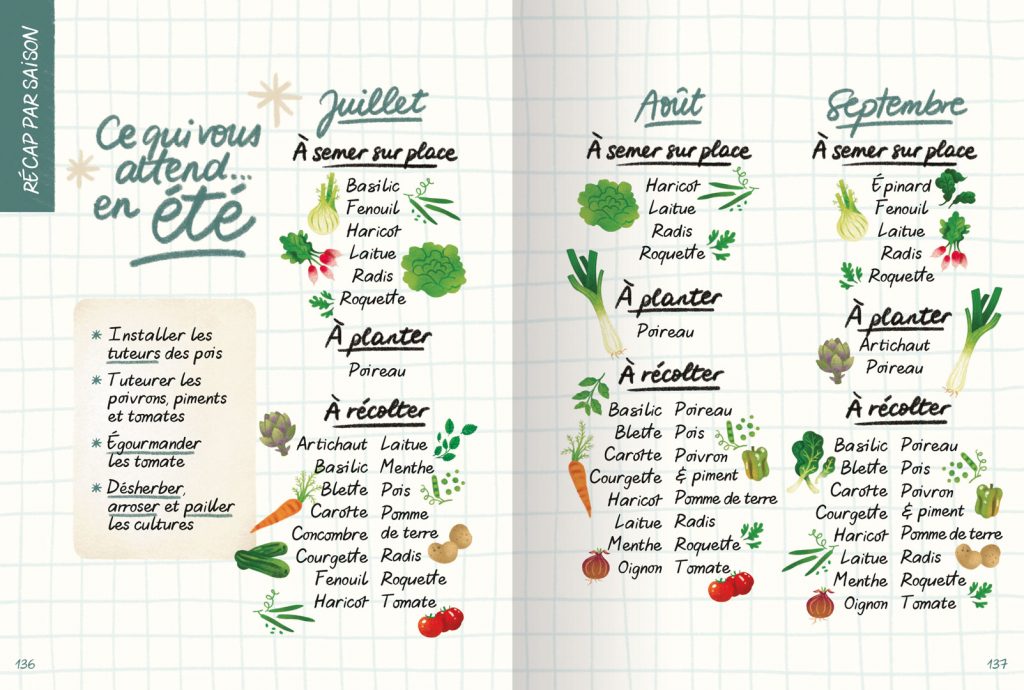 RÉCAP PAR SAISON
Ce qui vous
attend...
en été
* Installer les
tuteurs des pois
* Tuteurer les
poivrons, piments
et tomates
* Égourmander
les tomate
* Désherber,
arroser et pailler
les cultures
Juillet
À semer sur place
Basilic
Fenouil
Haricot
Laitue
Radis
Roquette
À planter
Poireau
À récolter
Artichaut
Basilic
Blette
Carotte
Concombre
Courgette
Fenouil
Haricot
Laitue
Menthe
Pois
Pomme
de terre
Radis
Roquette
Tomate
136
Août
À semer sur place
Haricot
Laitue
Radis
Roquette
À planter
Poireau
À récolter
Basilic
Blette
Carotte
Courgette
Haricot
Laitue
Menthe
Oignon
Poireau
Pois
Poivron
& piment
Pomme de terre
Radis
Roquette
Tomate
Septembre
À semer sur place
Épinard
Fenouil
Laitue
Radis
Roquette
À planter
Artichaut
Poireau
À récolter
Basilic
Blette
Carotte
Courgette
Haricot
Laitue
Menthe
Oignon
Poireau
Pois
Poivron
& piment
Pomme de terre
Radis
Roquette
Tomate
137